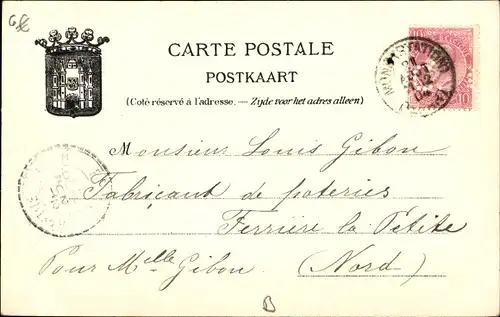 CARTE POSTALE
POSTKAART
(Coté réservé à l'adresse. — Zijde voor het adres alleen)
10
Monsieur Louis Gibon
Fabricant de poteries
Ferrière la Petite
Pour Mlle Gibon (Nord)
B